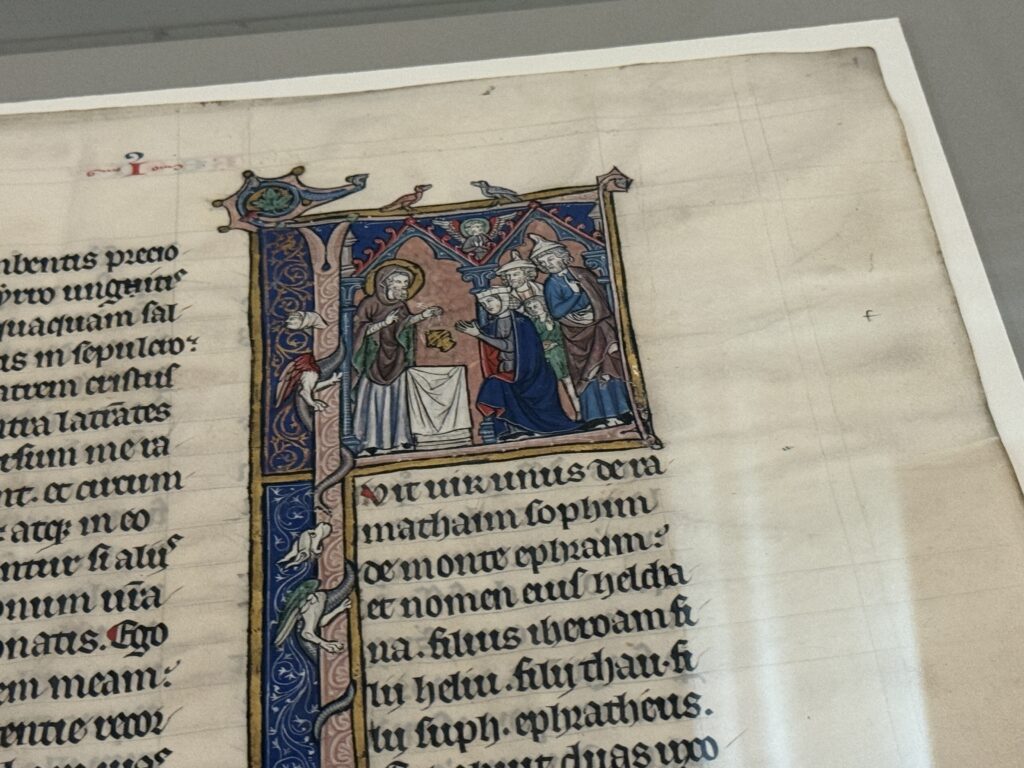 I
precio
yrro unguenti
quaquam sal
is in sepulcro:
trem cristus
tra latrātes
rsum me ra
nt. et circum
atq; in eo
ntur si aliis
onum ura
natis. Ego
em meam:
entie recor
uit uir unus de ra
mathaim sophim
de monte ephraim:
et nomen eius helcha
na. filius iheroam fi
lii heliu. filii thau. fi
lii suph. ephratheus.
duas uxo